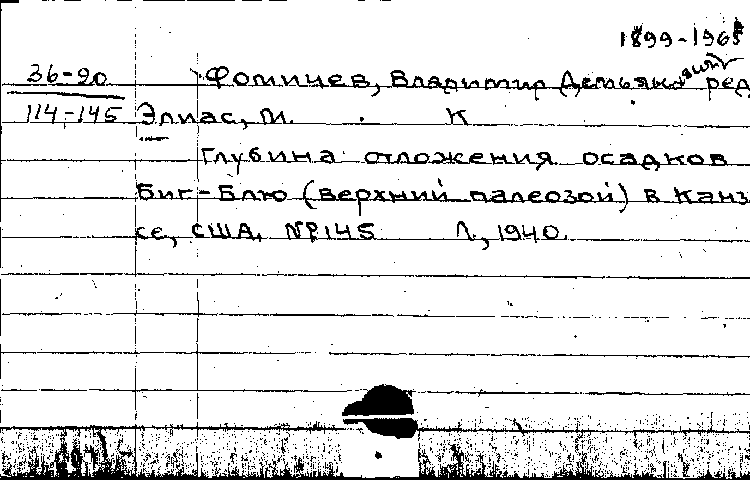 1899-1965
36-90 Фомичев, Владимир Демьянович ред
114-145 Элиас, М. К
Глубина отложения осадков
Биг-Блю (верхний палеозой) в Канза
се, США, №P145 Л., 1940.